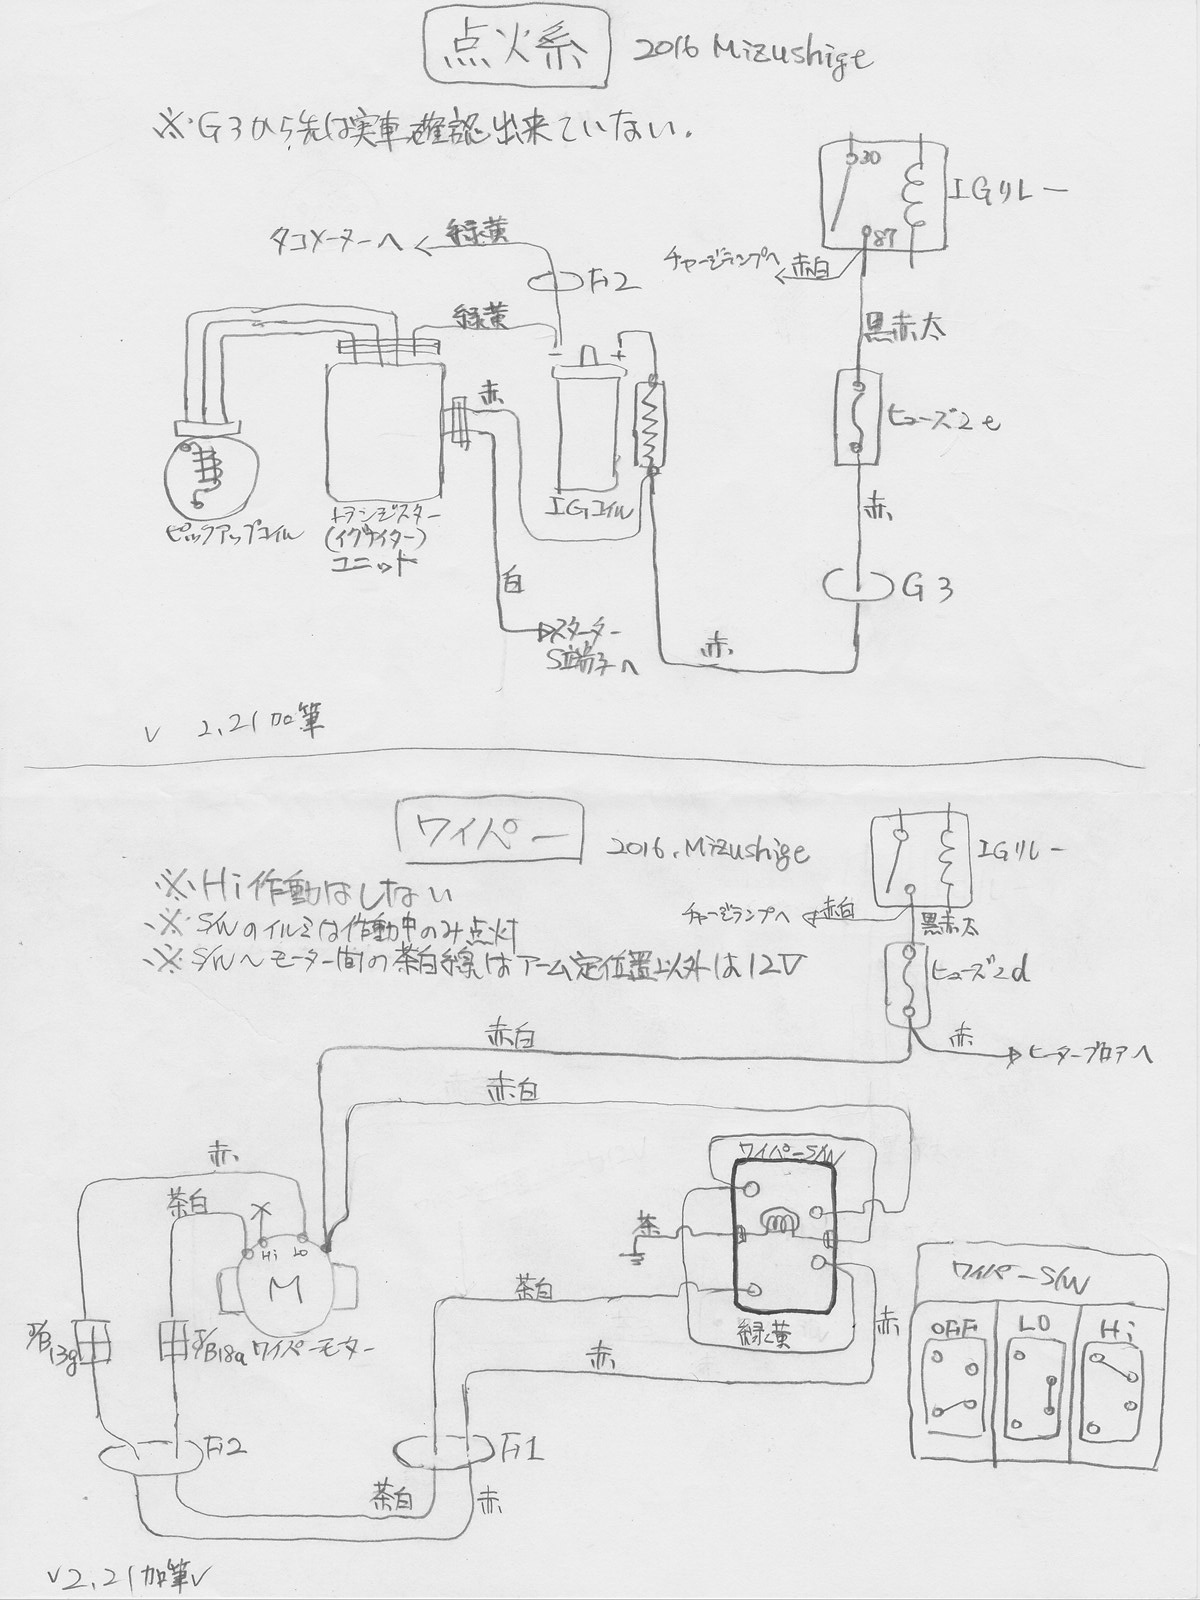 点火系
2016 Mizushige
※G3から先は実車確認出来ていない.
30
87
IGリレー
タコメーターへ
緑黄
チャージランプへ
赤白
F2
緑黄
黒赤太
- +
赤
ヒューズ2e
赤
IGコイル
ピックアップコイル
トランジスター
(イグナイター)
ユニット
白
G3
スターター
S端子へ
赤
2.21加筆
ワイパー
2016.Mizushige
IGリレー
※Hi作動はしない
※S/Wのイルミは作動中のみ点灯
※S/W〜モーター間の茶白線はアーム定位置以外は12V
チャージランプへ
赤白
黒赤太
ヒューズ2d
赤白
赤
ヒーターブロアへ
赤白
赤
ワイパーS/W
茶白
Hi
Lo
茶
M
茶白
ワイパーS/W
J/B13g
J/B18a
ワイパーモーター
緑黄
赤
赤
OFF
LO
Hi
F2
F1
茶白
赤
2.21加筆